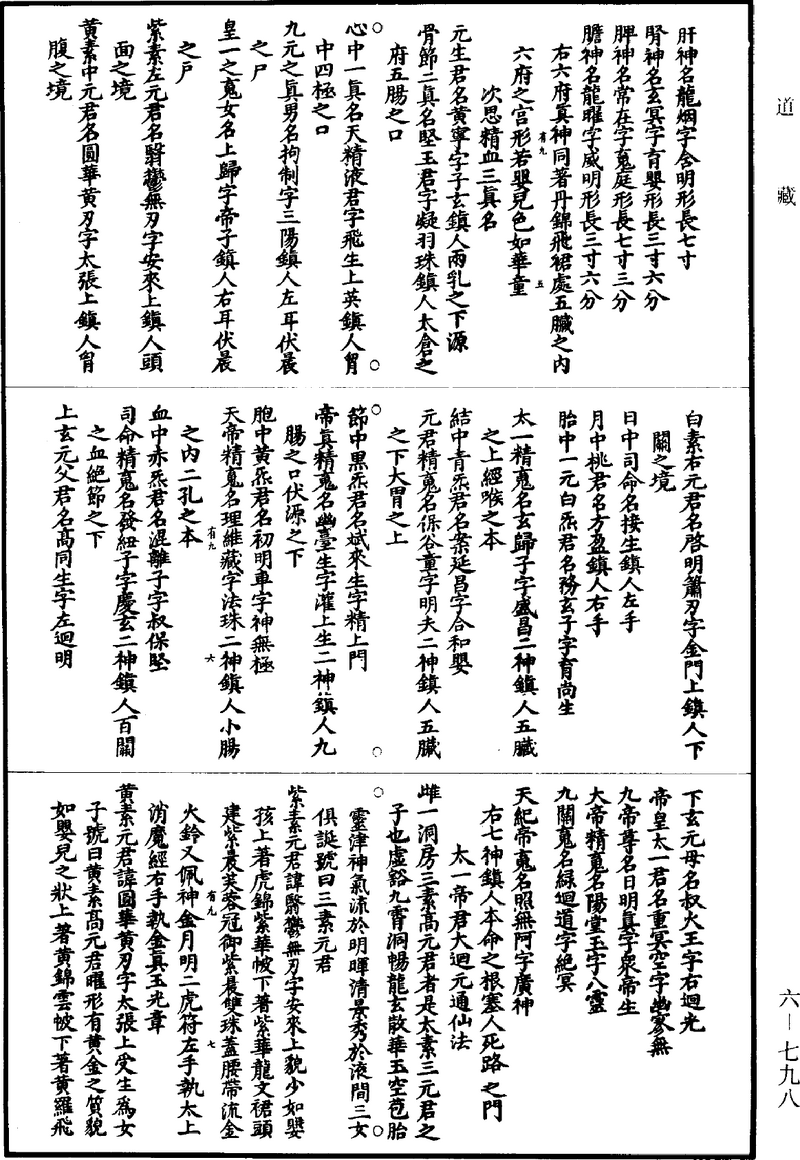 道藏
肝神名龍烟字含明形長七寸
腎神名玄冥字育嬰形長三寸六分
脾神名常在字䰟庭形長七寸三分
膽神名龍曜字威明形長三寸六分
右六府真神同著丹錦飛裙處五臟之內
六府之宫形若嬰兒色如華童
有九
五
次思精血三真名
元生君名黄寧字子玄鎮人兩乳之下源
骨節二真名堅玉君字凝羽珠鎮人太倉之
府五腸之口
心中一真名天精液君字飛生上英鎮人胷
中四極之口
九元之真男名拘制字三陽鎮人左耳伏晨
之尸
皇一之䰟女名上歸字帝子鎮人右耳伏晨
之戶
紫素左元君名翳鬱無刃字安來上鎮人頭
面之境
黄素中元君名圓華黄刃字太張上鎮人胷
腹之境
白素右元君名啓明蕭刃字金門上鎮人下
關之境
日中司命名接生鎮人左手
月中桃君名方盈鎮人右手
胎中一元白炁君名務玄子字育尚生
太一精䰟名玄歸子字盛昌二神鎮人五臟
之上經喉之本
結中青炁君名案延昌字合和嬰
元君精䰟名保谷童字明夫二神鎮人五臟
之下大胃之上
節中黑炁君名斌來生字精上門
帝真精䰟名幽臺生字灌上生二神鎮人九
腸之口伏源之下
胞中黄炁君名初明車字神無極
天帝精䰟名理維藏字法珠二神鎮人小腸
之內二孔之本
有九
六
血中赤炁君名混離子字叔保堅
司命精䰟名發紐子字慶玄二神鎮人百關
之血絕節之下
上玄元父君名高同生字左迴明
下玄元母名叔火王字右迴光
帝皇太一君名重冥空字幽寥無
九帝尊名日明真字衆帝生
大帝精䰟名陽堂玉字八靈
九關䰟名緑迴道字絕冥
天紀帝䰟名照無阿字廣神
右七神鎮人本命之根塞人死路之門
太一帝君大迴元通仙法
雌一洞房三素高元君者是太素三元君之
子也虛豁九霄洞暢龍玄散華玉空苞胎
靈津神氣流於明暉清景秀於液間三女
俱誕號曰三素元君
紫素元君諱翳鬱無刃字安來上貌少如嬰
孩上著虎錦紫華帔下著紫華龍文裙頭
建紫晨芙蓉冠御紫晨雙珠蓋腰帶流金
火鈴又佩神金月明二虎符左手執太上
消魔經右手執金真玉光章
有九
七
黄素元君諱圓華黄刃字太張上受生為女
子號曰黄素高元君曜形有黄金之質貌
如嬰兒之狀上著黄錦雲帔下著黄羅飛
六—七九八